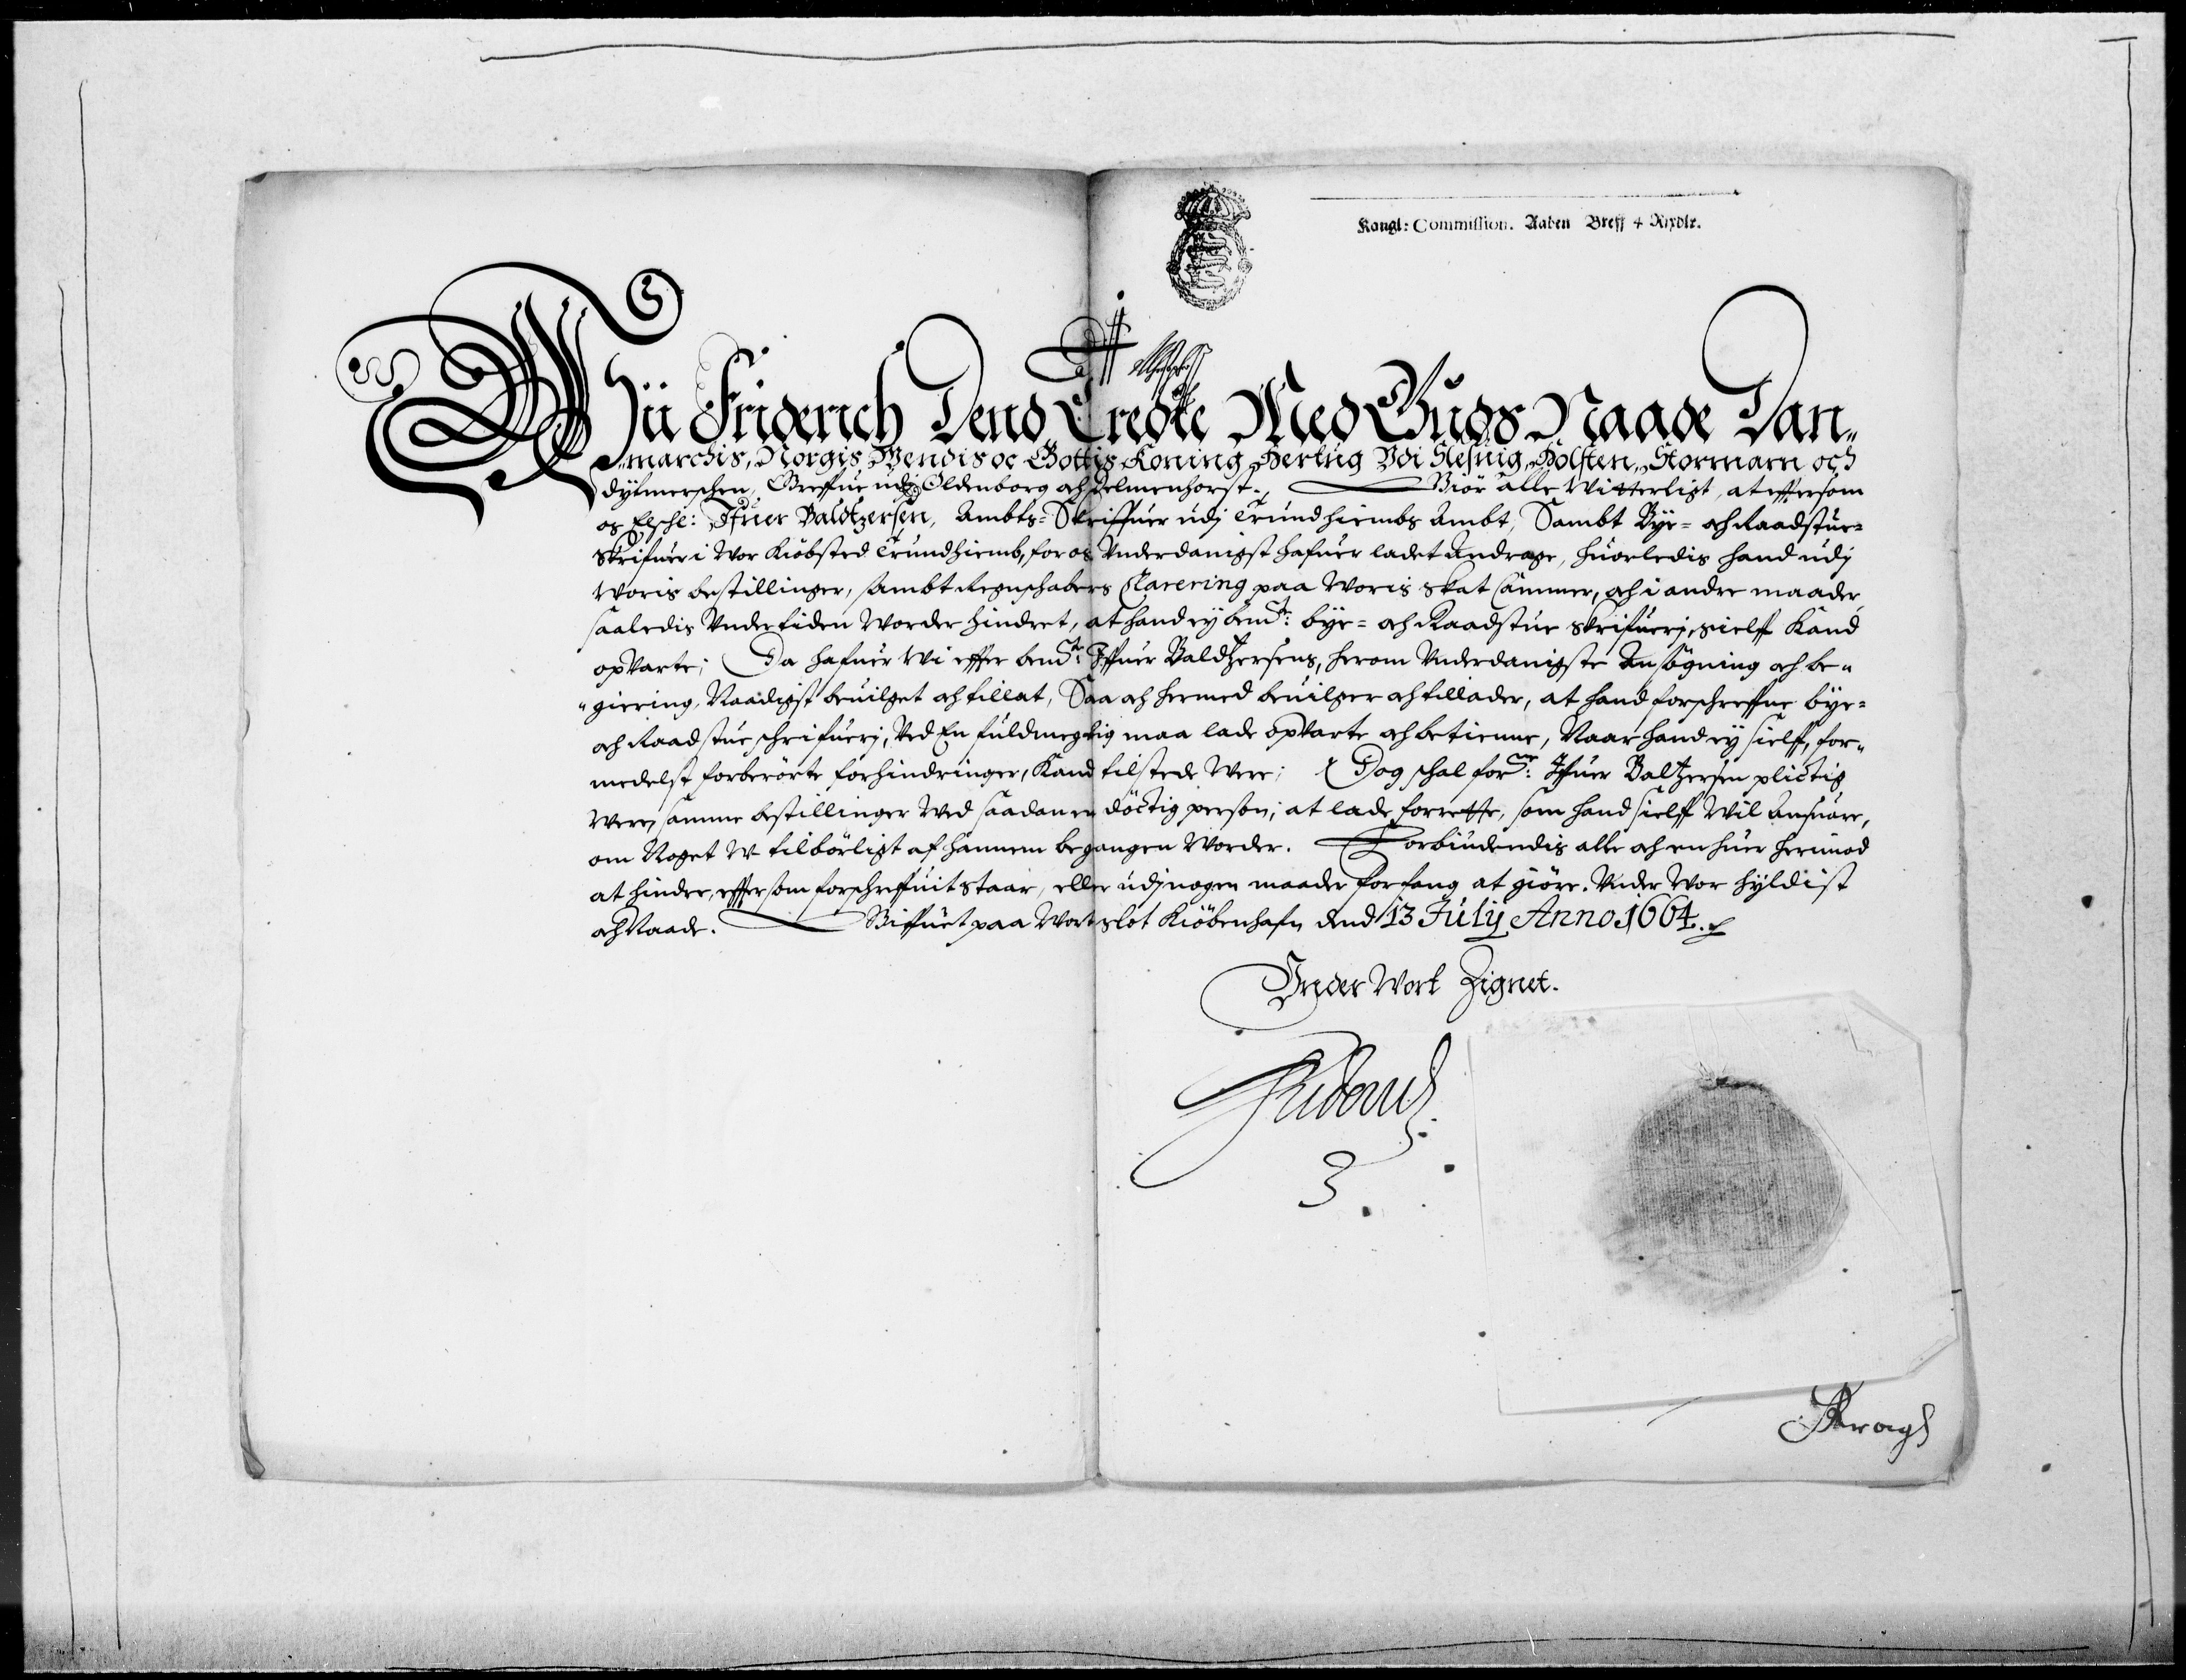 Kongl: Commission. Aaben Breff 4 Rixdlr.
Wii Friderich Dend Tredie Med Guds Naade Dan„
„marchis, Norgis Wendis oc Gottis Koning, Hertug Vdi Slesuig, Holsten, Stormarn och
dytmerschen, Greffue udj Oldenborg och delmenhorst., Giör alle Witterligt, at eftersom
os Elschl: Ifuer Baldtzersen, Ambts-Skriffuer udj Trundhiembs Ambt, Sambt Bye- och Raadstue-
Skrifuer i Wor Kiöbsted Trundhiemb, for os Vnderdanigst hafuer ladet andrage, huorledis hand udj
Woris bestillinger, sambt Regnschabers Clarering paa Woris Skat Cammer, och i andre maader
saaledis Vndertiden Worder hindret, at hand ey bemte: bye- och Raadstue Skrifueri, sielff Kand
opVarte; Da hafuer Wi efter bemte: Iffuer Baldtzersens, herom Vnderdanigste Ansögning och be„
„giering, Naadigst beuilget och tillat, Saa och hermed beuilger och tillader, at hand forschreffne bye-
och Raadstue schrifueri, Ved En fuldmegtig maa lade opVarte och betienne, Naar hand ey sielff, for„
medelst forberörte forhindringer, Kand tilstede Were; Dog schal forne: Iffuer Baltzersen plictig
Were, samme bestillinger Wed saadan en döctig person, at lade forrette, som hand sielff Wil ansuare,
om Noget W-tilbörligt af hannem begangen Worder. Forbiudendis alle och en huer herimod
at hindre, eftersom forschreffuit staar, eller udj nogen maader forfang at giöre. Vnder Wor hyldist
och Naade. Giffuet paa Wort slot Kiöbenhafn dend 13 July Anno 1664.
Vnder Wort Zignet.
Friderich
3.